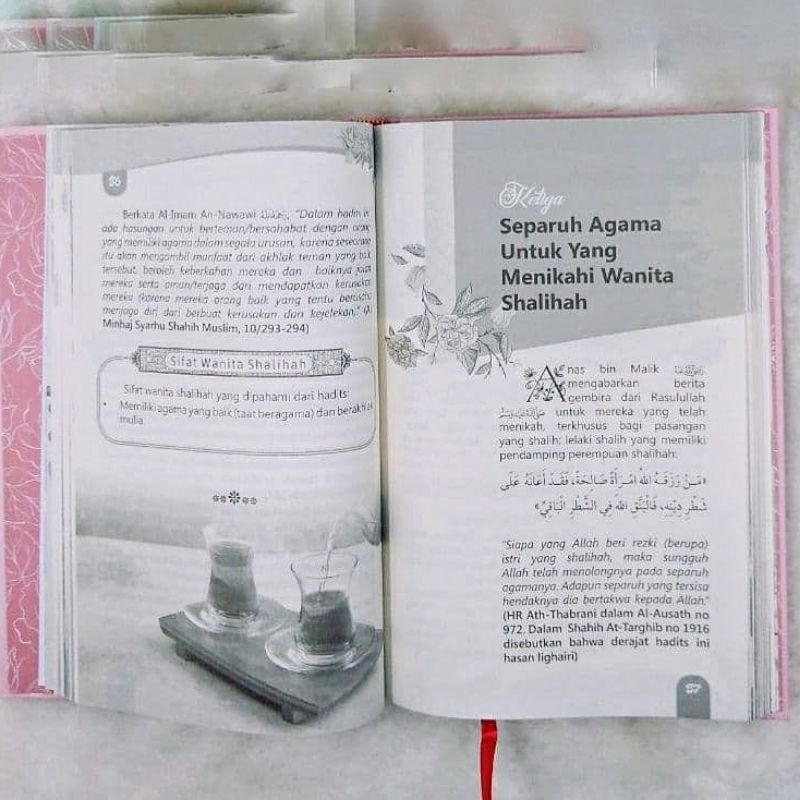 86
Berkata Al-Imam An-Nawawi رحمه الله, "Dalam hadits in
ada hasungan untuk berteman/bersahabat dengan orang
yang memiliki agama dalam segala urusan, karena seseorang
itu akan mengambil manfaat dari akhlak teman yang baik
tersebut, beroleh keberkahan mereka dan baiknya
mereka serta aman/terjaga dari mendapatkan kerusakan
mereka (karena mereka orang baik yang tentu berusaha
menjaga diri dari berbuat kerusakan dan kejelekan." (Al
Minhaj Syarhu Shahih Muslim, 10/293-294)
Sifat Wanita Shalihah
Sifat wanita shalihah yang dipahami dari hadits:
• Memiliki agama yang baik (taat beragama) dan berakhlak
mulia.
Ketiga
Separuh Agama
Untuk Yang
Menikahi Wanita
Shalihah
Anas bin Malik رضي الله عنه
mengabarkan berita
gembira dari Rasulullah
صلى الله عليه وسلم untuk mereka yang telah
menikah, terkhusus bagi pasangan
yang shalih; lelaki shalih yang memiliki
pendamping perempuan shalihah:
«مَنْ رَزَقَهُ اللهُ امْرَأَةً صَالِحَةً، فَقَدْ أَعَانَهُ عَلَى
شَطْرِ دِيْنِهِ، فَالْيَتَّقِ اللهَ فِي الشَّطْرِ الْبَاقِيْ»
"Siapa yang Allah beri rezki (berupa)
istri yang shalihah, maka sungguh
Allah telah menolongnya pada separuh
agamanya. Adapun separuh yang tersisa
hendaknya dia bertakwa kepada Allah."
(HR Ath-Thabrani dalam Al-Ausath no
972. Dalam Shahih At-Targhib no 1916
disebutkan bahwa derajat hadits ini
hasan lighairi)
87